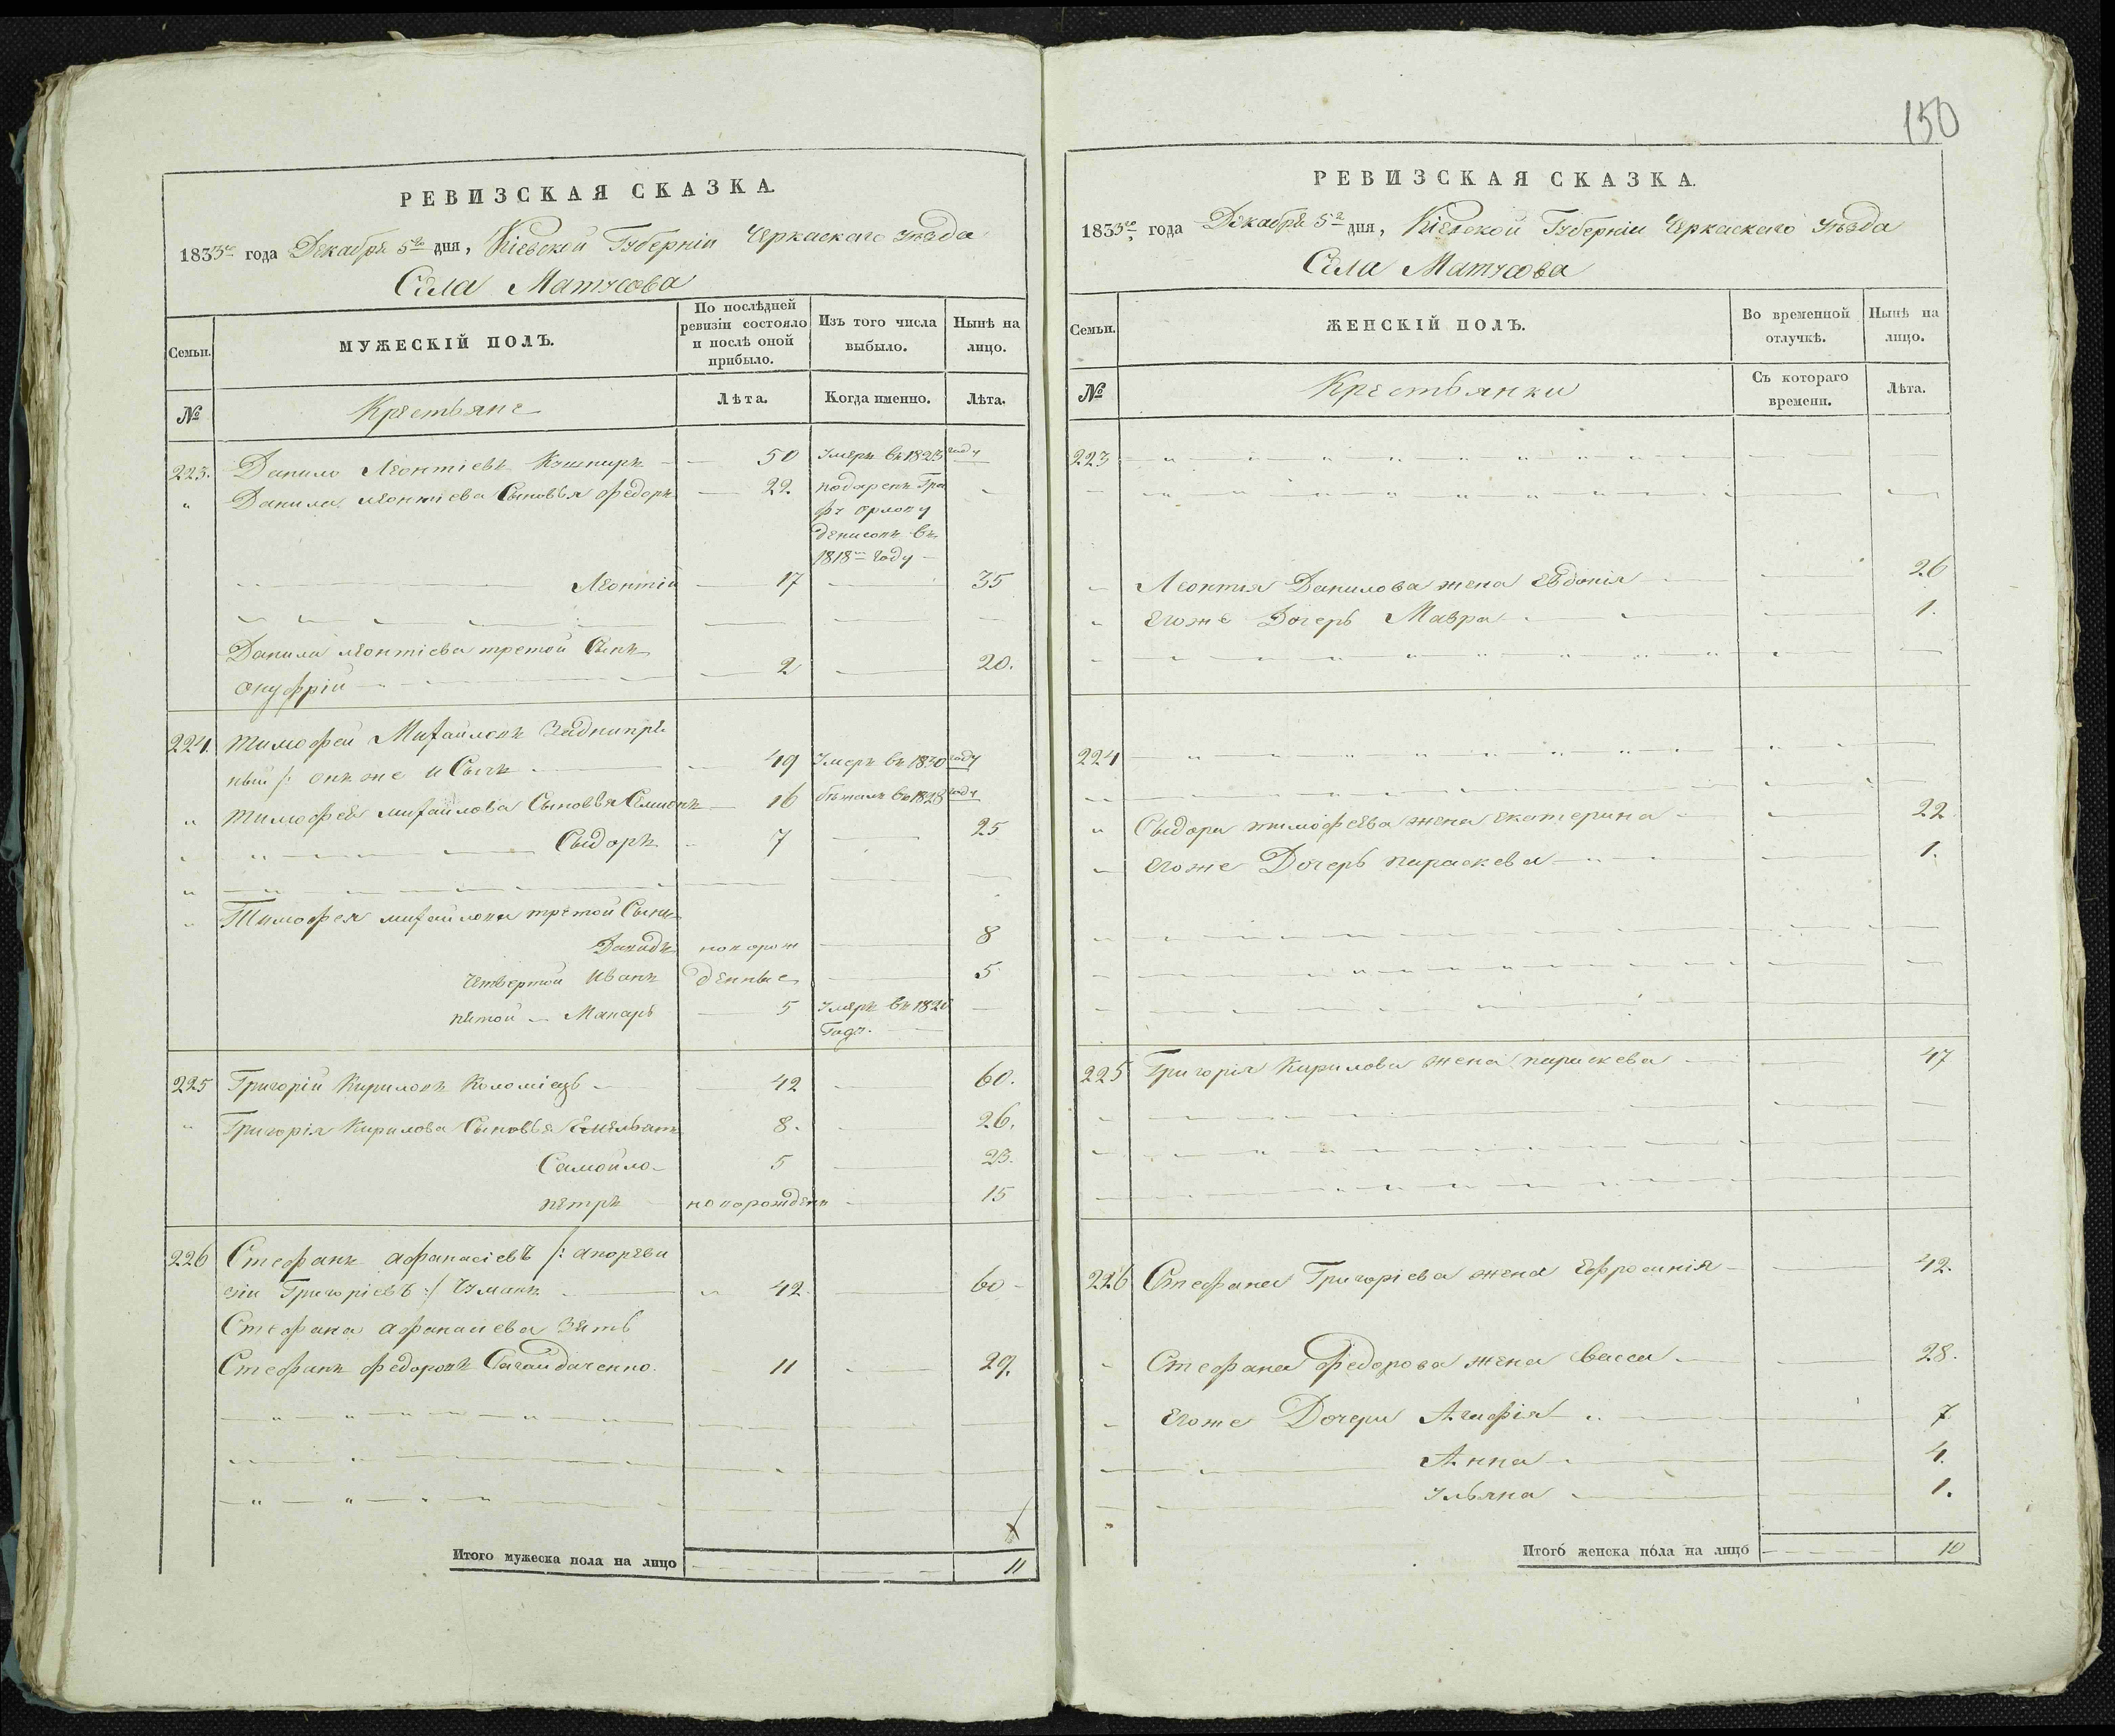 РЕВИЗСКАЯ СКАЗКА.
1833го года Декабря 5го дня, Кіевской Губерніи Черкаскаго Уѣзда
Села Матусова
Семьи.
МУЖЕСКІЙ ПОЛЪ.
По послѣдней ревизіи состояло и послѣ оной прибыло.
Изъ того числа выбыло.
Нынѣ на лицо.
№
Крестьяне
Лѣта.
Когда именно.
Лѣта.
223. Данило Леонтіевъ Кушниръ 50 Умеръ въ 1823 году
Данила Леонтіева Сыновья Федоръ 22 подаренъ Гра
фу Орлову
Денисовъ въ
1818м году
Леонтій 17 35
Данила Леонтіева третой Сынъ
Онуфрій 2 20.
224. Тимофей Михайловъ Заднипря
ный /: онъ же и Сычъ 49 Умеръ въ 1830 году
Тимофея Михайлова Сыновья Семионъ 16 бѣжалъ въ 1828 году
Сыдоръ 7 25
Тимофея Михайлова третой Сынъ
Давидъ новорож 8
Четвертой Иванъ денные 5
пятой Макаръ 5 Умеръ въ 1826
Году.
225 Григорій Кириловъ Коломіецъ 42 60.
Григорія Кирилова Сыновья Емельянъ 8. 26.
Самойло 5 23.
петръ новорожденъ 15
226 Стефанъ Афанасіевъ /: а по реви
зіи Григоріевъ :/ Чумакъ 42 60
Стефана Афанасиева Зять
Стефанъ Федоровъ Сагайдаченко. 11 29.
Итого мужеска пола на лицо 11
150
РЕВИЗСКАЯ СКАЗКА.
1833го, года Декабря 5го дня, Кіевской Губерніи Черкаскаго Уѣзда
Села Матусова
Семьи.
ЖЕНСКІЙ ПОЛЪ.
Во временной отлучкѣ.
Нынѣ на лицо.
№
Крестьянки
Съ котораго времени.
Лѣта.
223
Леонтия Данилова жена Евдокія 26
Егоже Дочерь Мавра 1.
224
Сыдора Тимофеева жена Екатерина 22
Егоже Дочерь параскева 1.
225 Григорія Кирилова жена параскева 47
226 Стефана Григоріева жена Ефросинія 42.
Стефана Федорова жена Васса 28.
Егоже Дочери Агафія 7
Анна 4.
Ульяна 1.
Итого женска пола на лицо 10